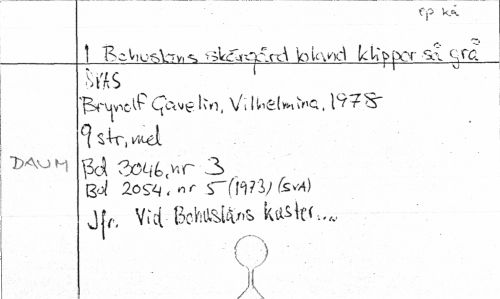 ep kä
I Bohusläns skärgård bland klippor så grå
SVAS
Brynolf Gavelin, Vilhelmina, 1978
9 str, mel
DAUM
Bd 3046, nr 3
Bd 2054, nr 5 (1973) (SVA)
Jfr. Vid Bohusläns kuster....